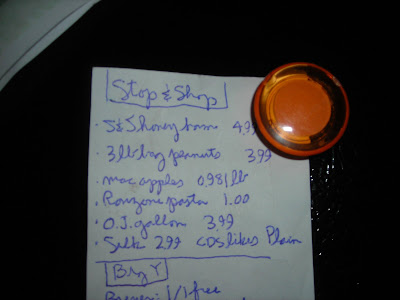 Stop & Shop
· S&S honey ham 4.99
· 3 lb bag peanuts 3.99
· mac apples 0.98/lb
· Ronzone pasta 1.00
· O.J. gallon 3.99
· Silk 2.99 CDS likes Plain
Big Y
1/1 free